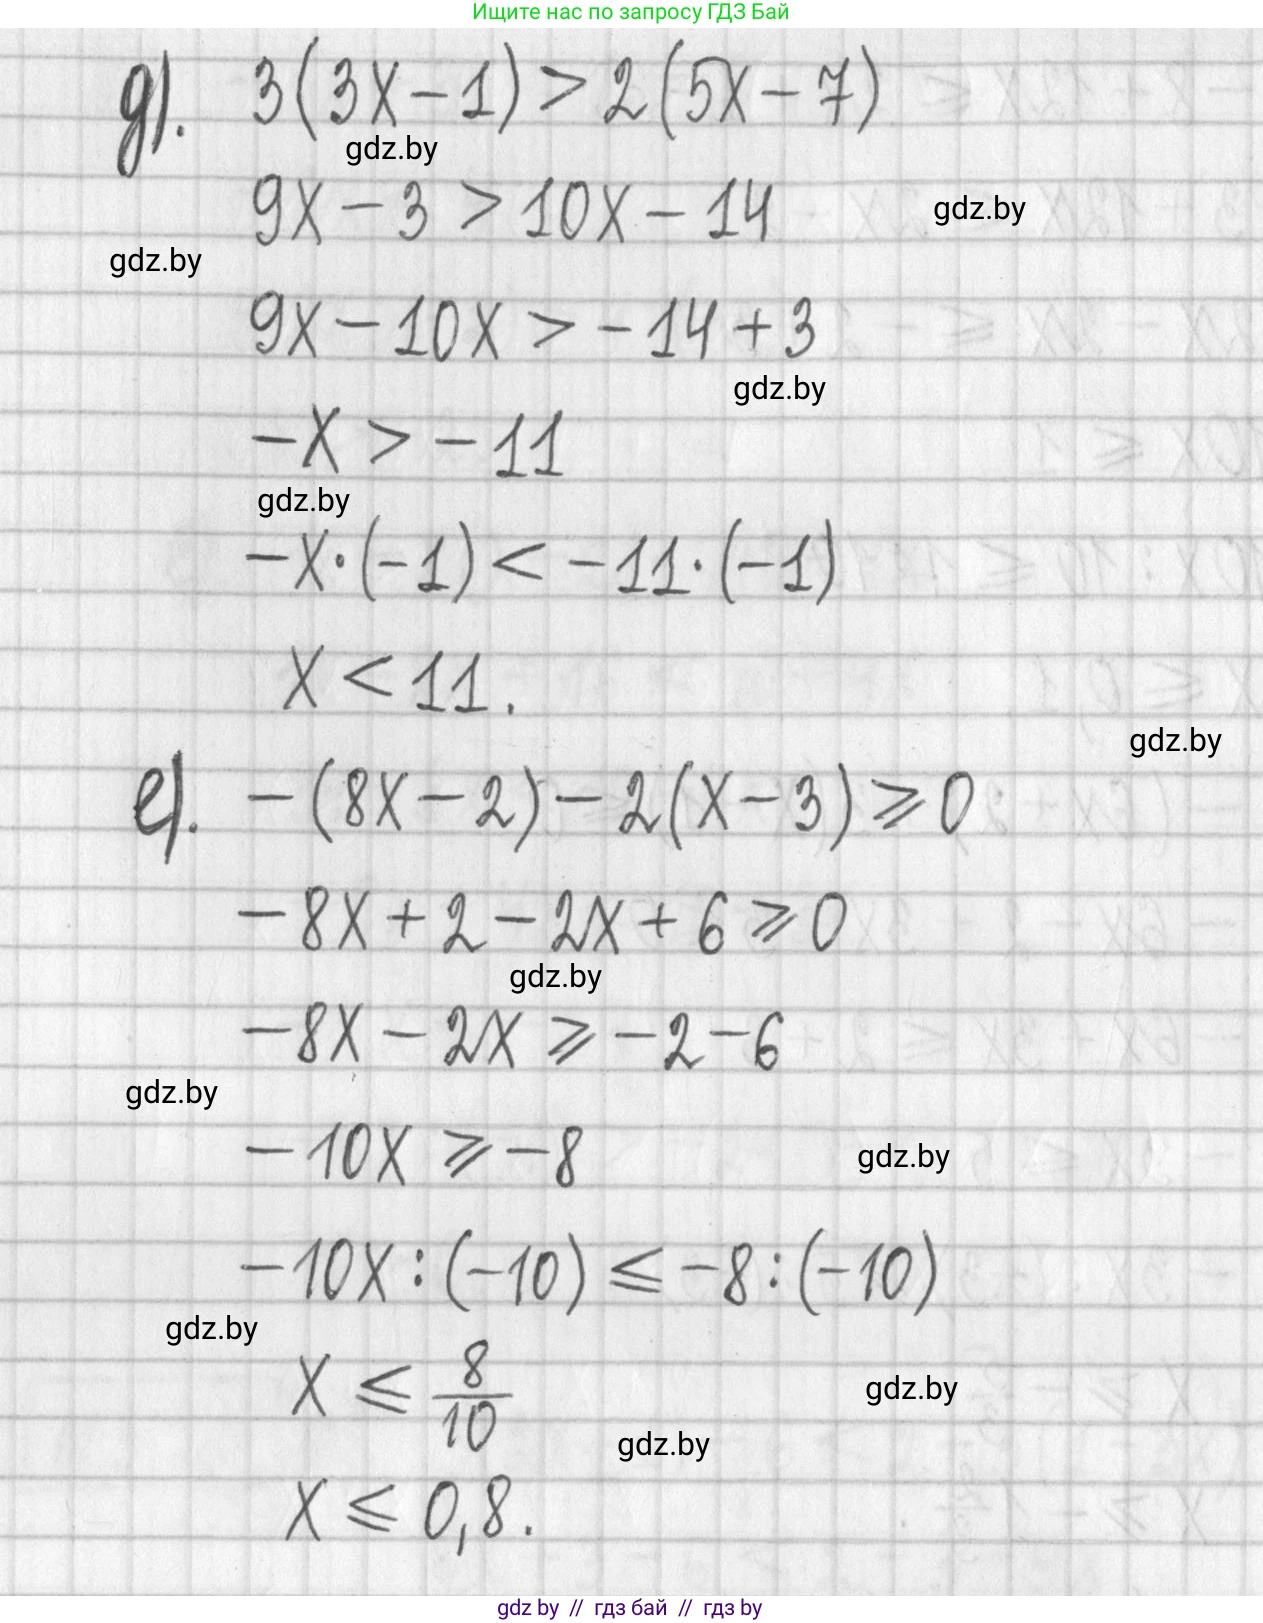 Ищите нас по запросу ГДЗ Бай
д). 3(3x-1)>2(5x-7)
gdz.by
9x-3>10x-14
gdz.by
gdz.by
9x-10x>-14+3
gdz.by
-x>-11
gdz.by
-x·(-1)<-11·(-1)
x<11.
gdz.by
е). -(8x-2)-2(x-3)⩾0
-8x+2-2x+6⩾0
gdz.by
-8x-2x⩾-2-6
gdz.by
-10x⩾-8
gdz.by
-10x:(-10)⩽-8:(-10)
gdz.by
x⩽8/10
gdz.by
gdz.by
x⩽0,8.
gdz by // гдз бай // гдз by